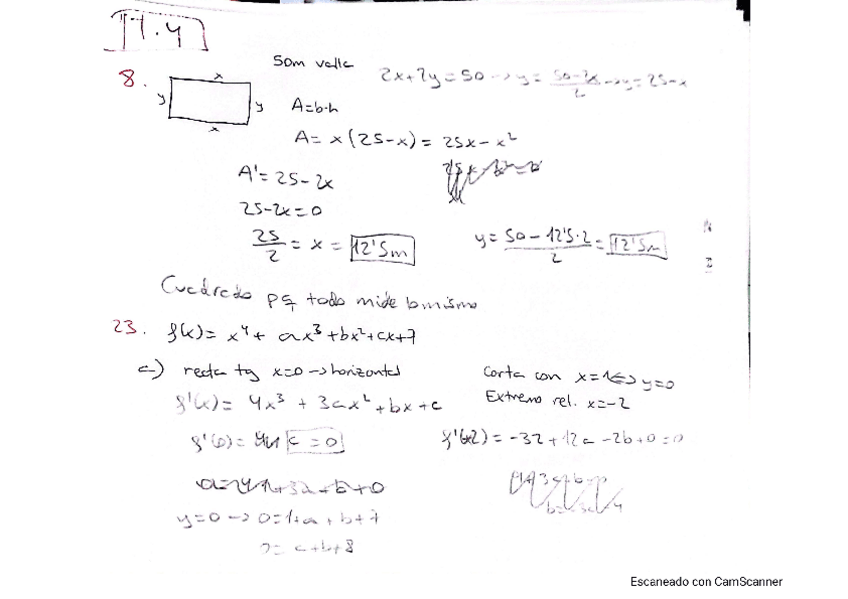 T.4
8.
x
y
y
x
50m valla
2x+2y=50 → y= (50-2x)/2 → y=25-x
A=b·h
A= x(25-x) = 25x-x²
A'= 25-2x
25-2x=0
25/2 = x = 12'5m
y= (50-12'5·2)/2 = 12'5m
Cuadrado pq todo mide lo mismo
23. f(x)= x⁴+ ax³+bx²+cx+7
a) recta tg x=0 → horizontal
Corta con x=1 ⇔ y=0
Extremo rel. x=-2
f'(x)= 4x³ + 3ax² + bx + c
f'(0)= c = 0
f'(-2) = -32 + 12a - 2b + 0 = 0
y=0 → 0=1+a+b+7
0= a+b+8
Escaneado con CamScanner